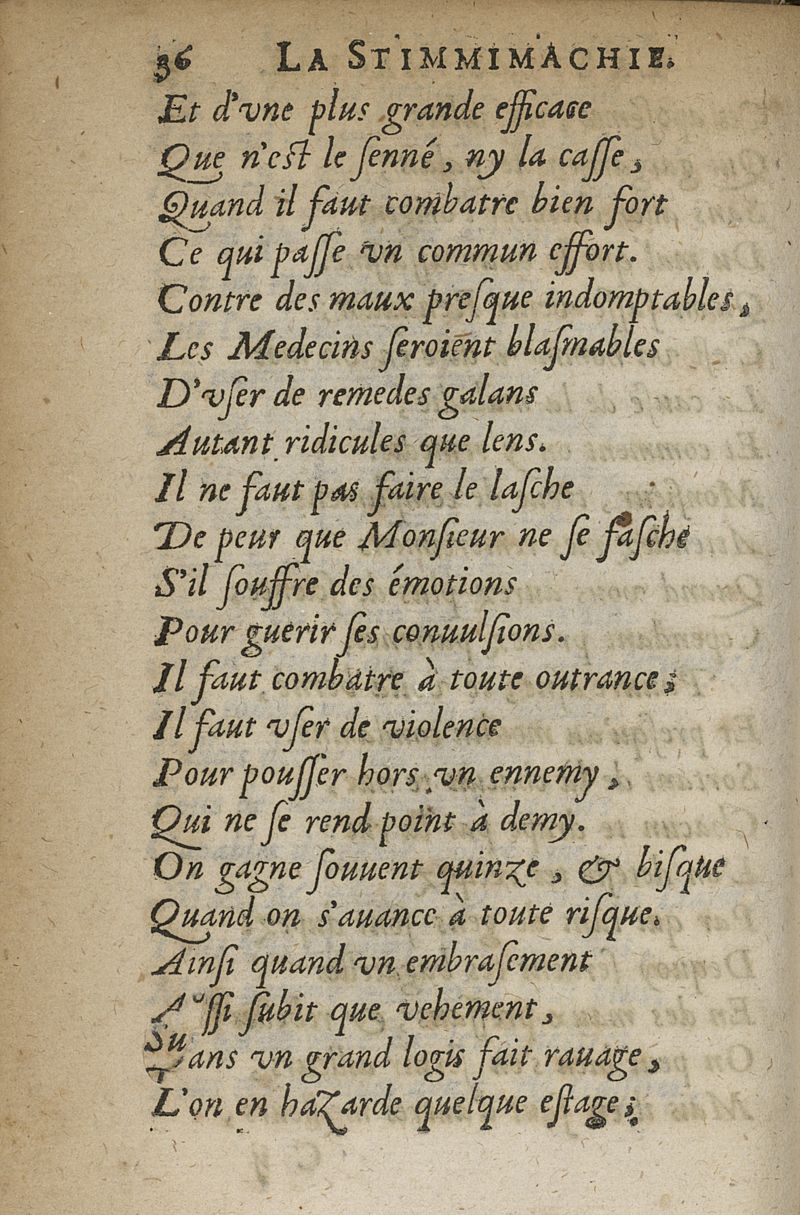 36 LA STIMMIMACHIE.
Et d'vne plus grande efficace
Que n'est le ſenné, ny la caſſe,
Quand il faut combatre bien fort
Ce qui paſſe vn commun effort.
Contre des maux preſque indomptables,
Les Medecins ſeroient blaſmables
D'vſer de remedes galans
Autant ridicules que lens.
Il ne faut pas faire le laſche
De peur que Monſieur ne ſe faſche
S'il ſouffre des émotions
Pour guerir ſes conuulſions.
Il faut combatre à toute outrance;
Il faut vſer de violence
Pour pouſſer hors vn ennemy,
Qui ne ſe rend point à demy.
On gagne ſouuent quinze, & biſque
Quand on s'auance à toute riſque.
Ainſi quand vn embraſement
Auſſi ſubit que vehement,
Dans vn grand logis fait rauage,
L'on en haZarde quelque eſtage;